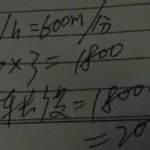 /h=600m/分
×3=1800
车长度=1800
=20